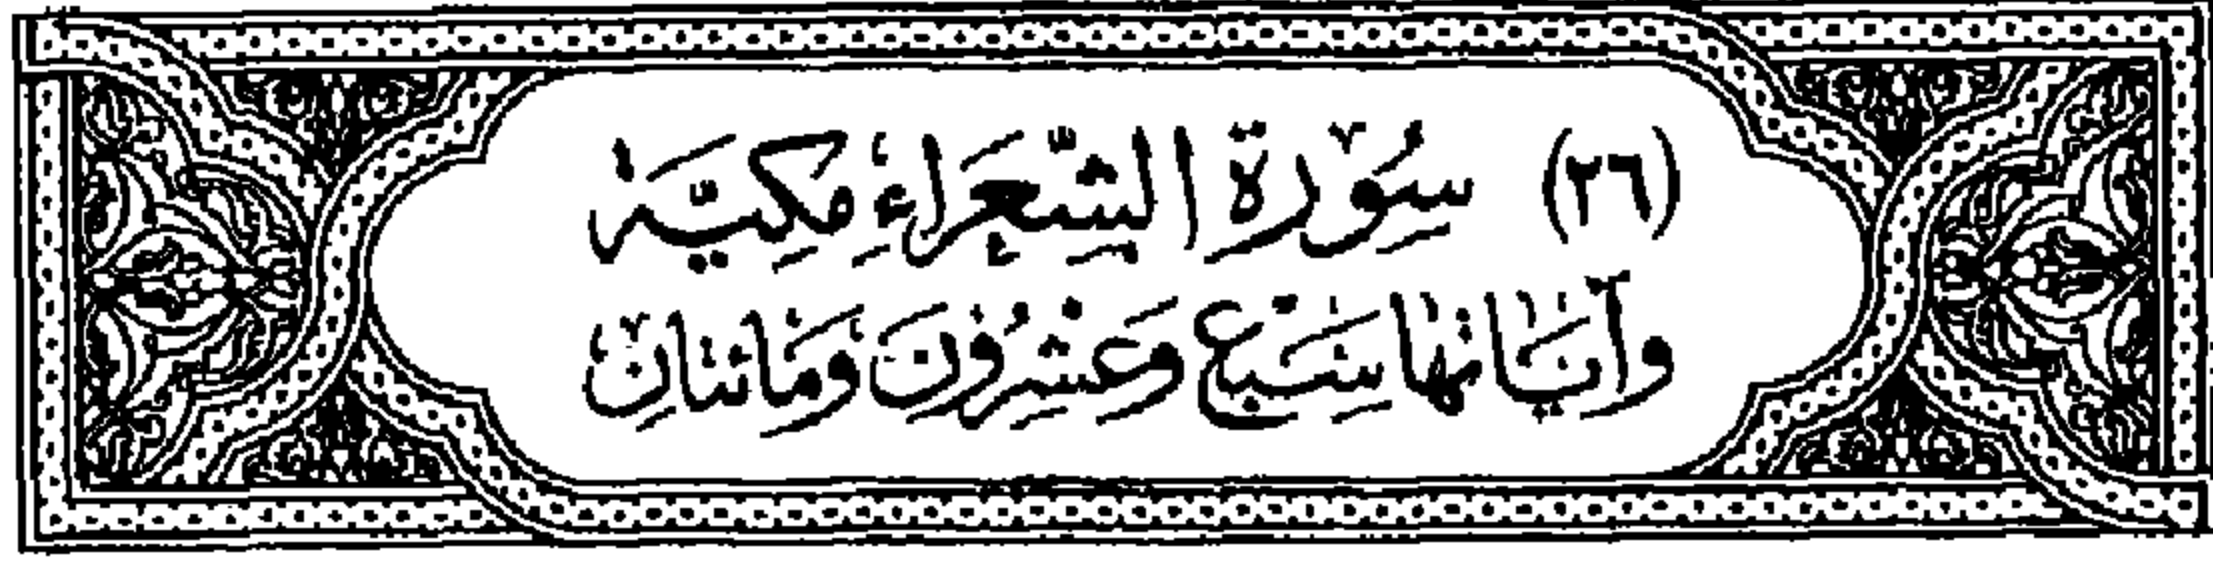 (٢٦) سُوْرَةُ الشِّعَرَاءِ مَكِيَّة
وَآيَاتُهَا سَبْعٌ وَعَشْرُوْنَ وَمَائتَانِ